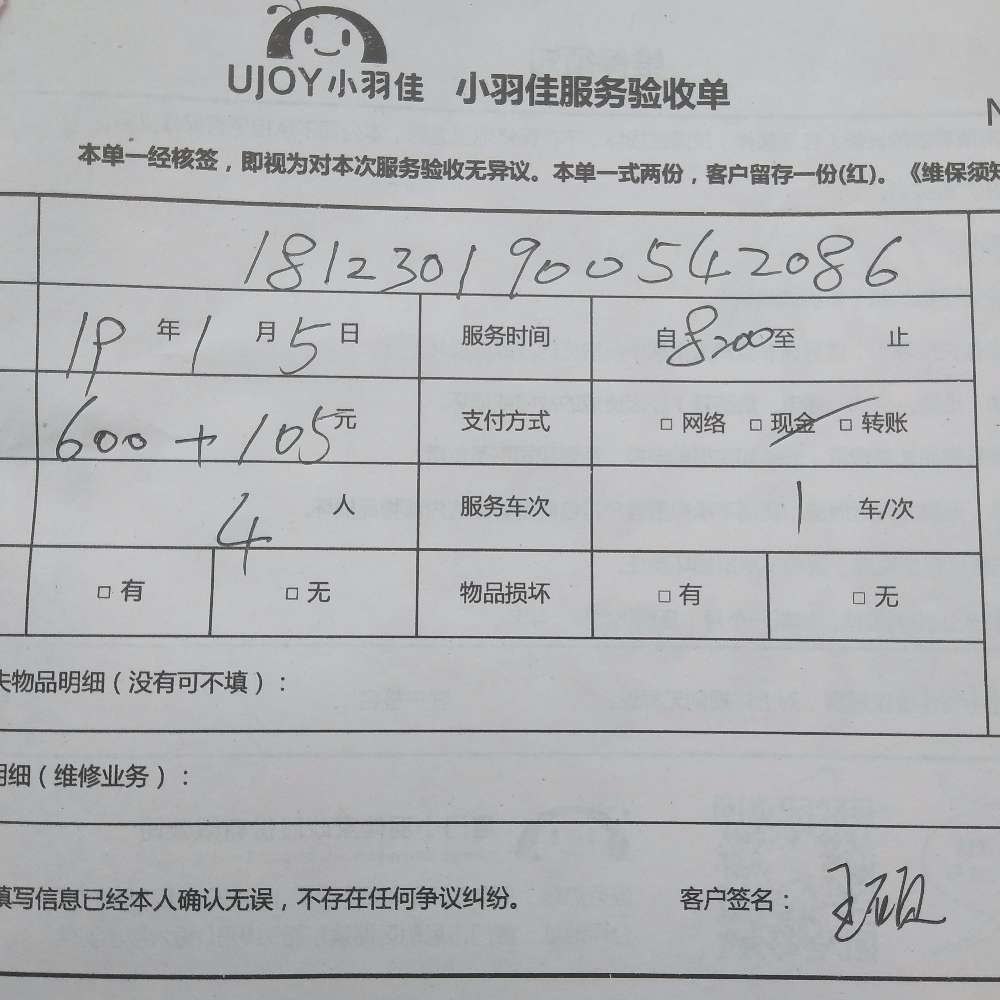 UJOY小羽佳 小羽佳服务验收单
N
本单一经核签，即视为对本次服务验收无异议。本单一式两份，客户留存一份(红)。《维保须知
1812301900542086
19年1月5日 服务时间 自8:00至 止
600+105元 支付方式 □ 网络 □ 现金 □ 转账
4人 服务车次 1车/次
□ 有 □ 无 物品损坏 □ 有 □ 无
失物品明细（没有可不填）：
明细（维修业务）：
填写信息已经本人确认无误，不存在任何争议纠纷。 客户签名：王硕